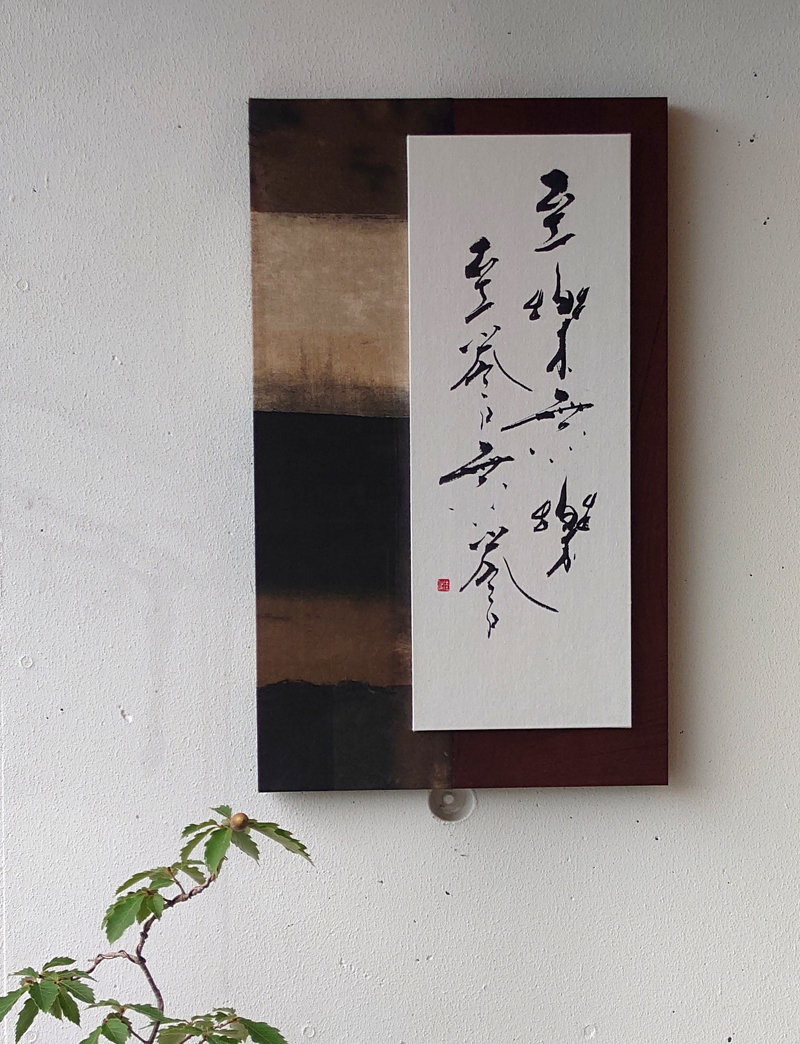 至樂無樂
至誉無誉